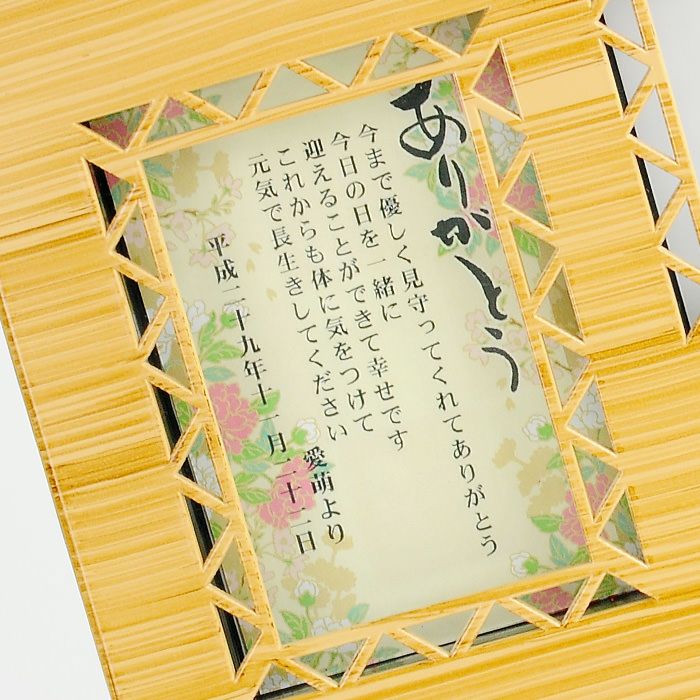 ありがとう
今まで優しく見守ってくれてありがとう
今日の日を一緒に
迎えることができて幸せです
これからも体に気をつけて
元気で長生きしてください
愛萌より
平成二十九年十一月二十二日